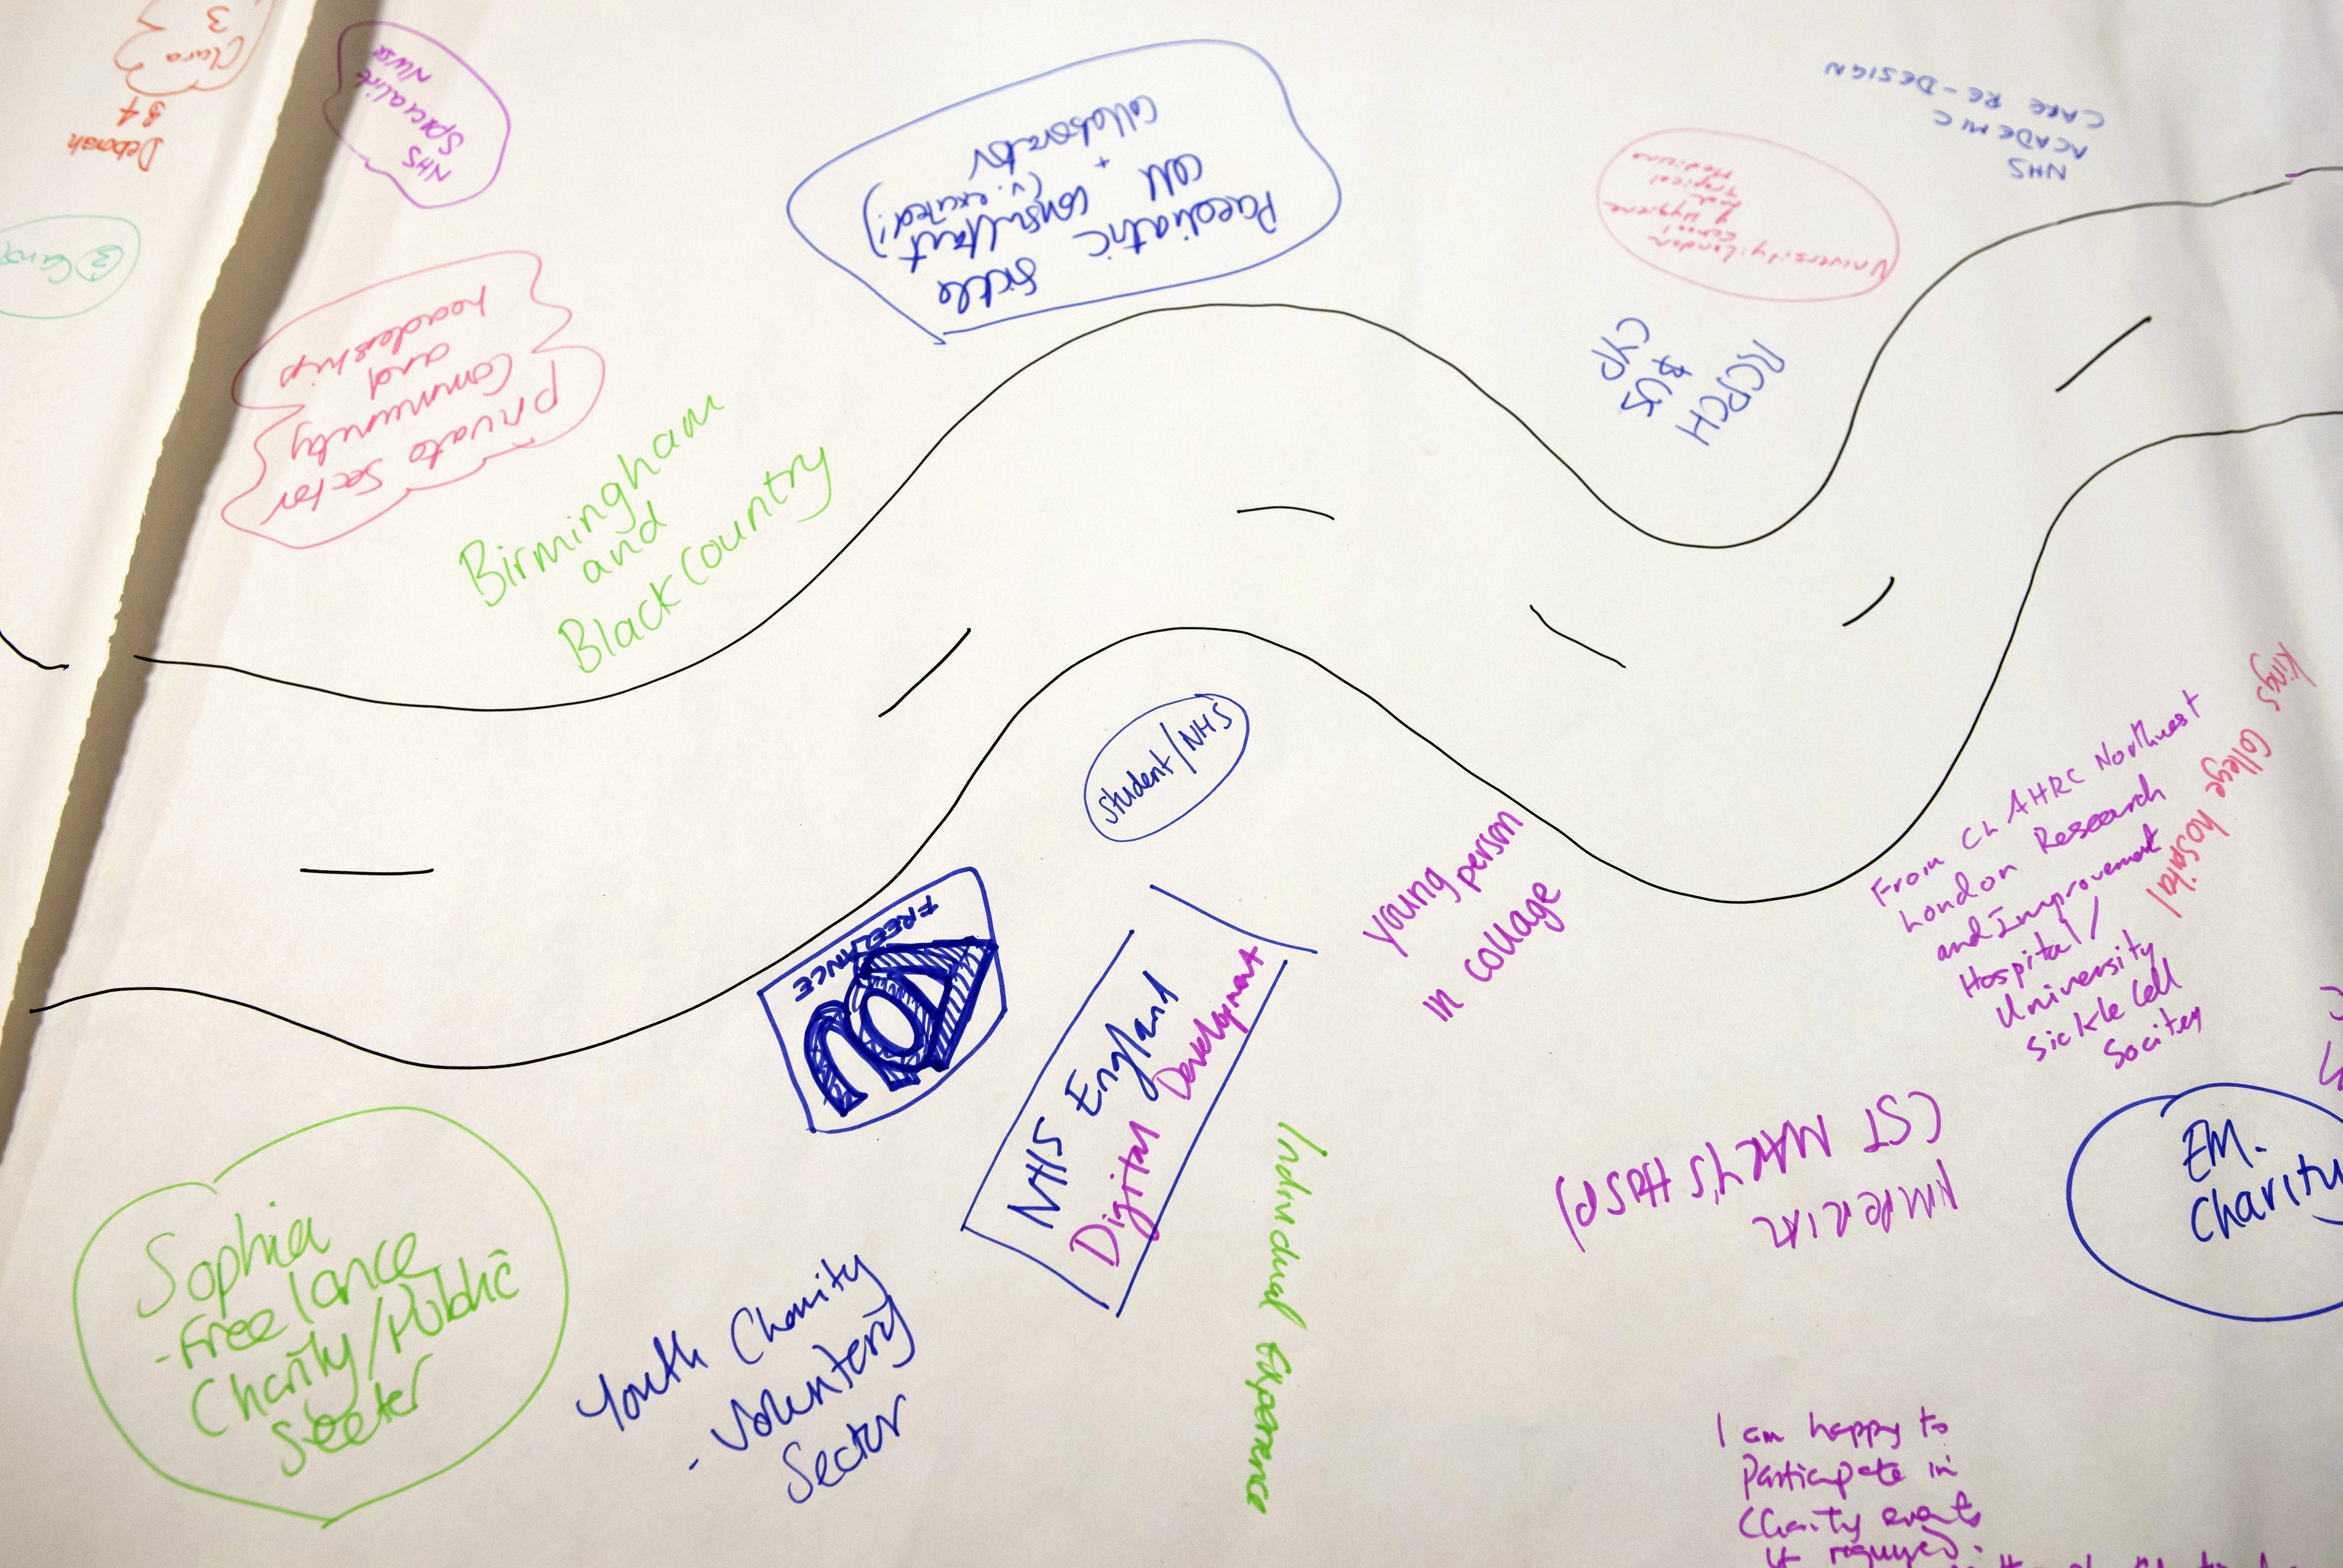 Clara
3
Deborah
34
NHS
Specialist
Nurse
Private Sector
Community
and
leadership
Birmingham
and
Black Country
Sickle
Cell
Paediatric
Consultant
(v. excited!)
+
Collaborator
University: London
School
of Hygiene
and
Tropical
Medicine
NHS
ACADEMIC
CARE RE-DESIGN
RCPCH
&
CYP
student/NHS
FREELANCE
NHS England
Digital Development
young person
in collage
Kings College hospital
From CLAHRC Northwest
London Research
and Improvement
Hospital/
University
Sickle Cell
Socitey
(ST MARY'S HOSP)
IMPERIAL
EM.
Charity
Sophia
-Freelance
Charity/Public
Sector
Youth Charity
- Voluntery
Sector
Individual Experience
I am happy to
Participate in
Charity events
if required.